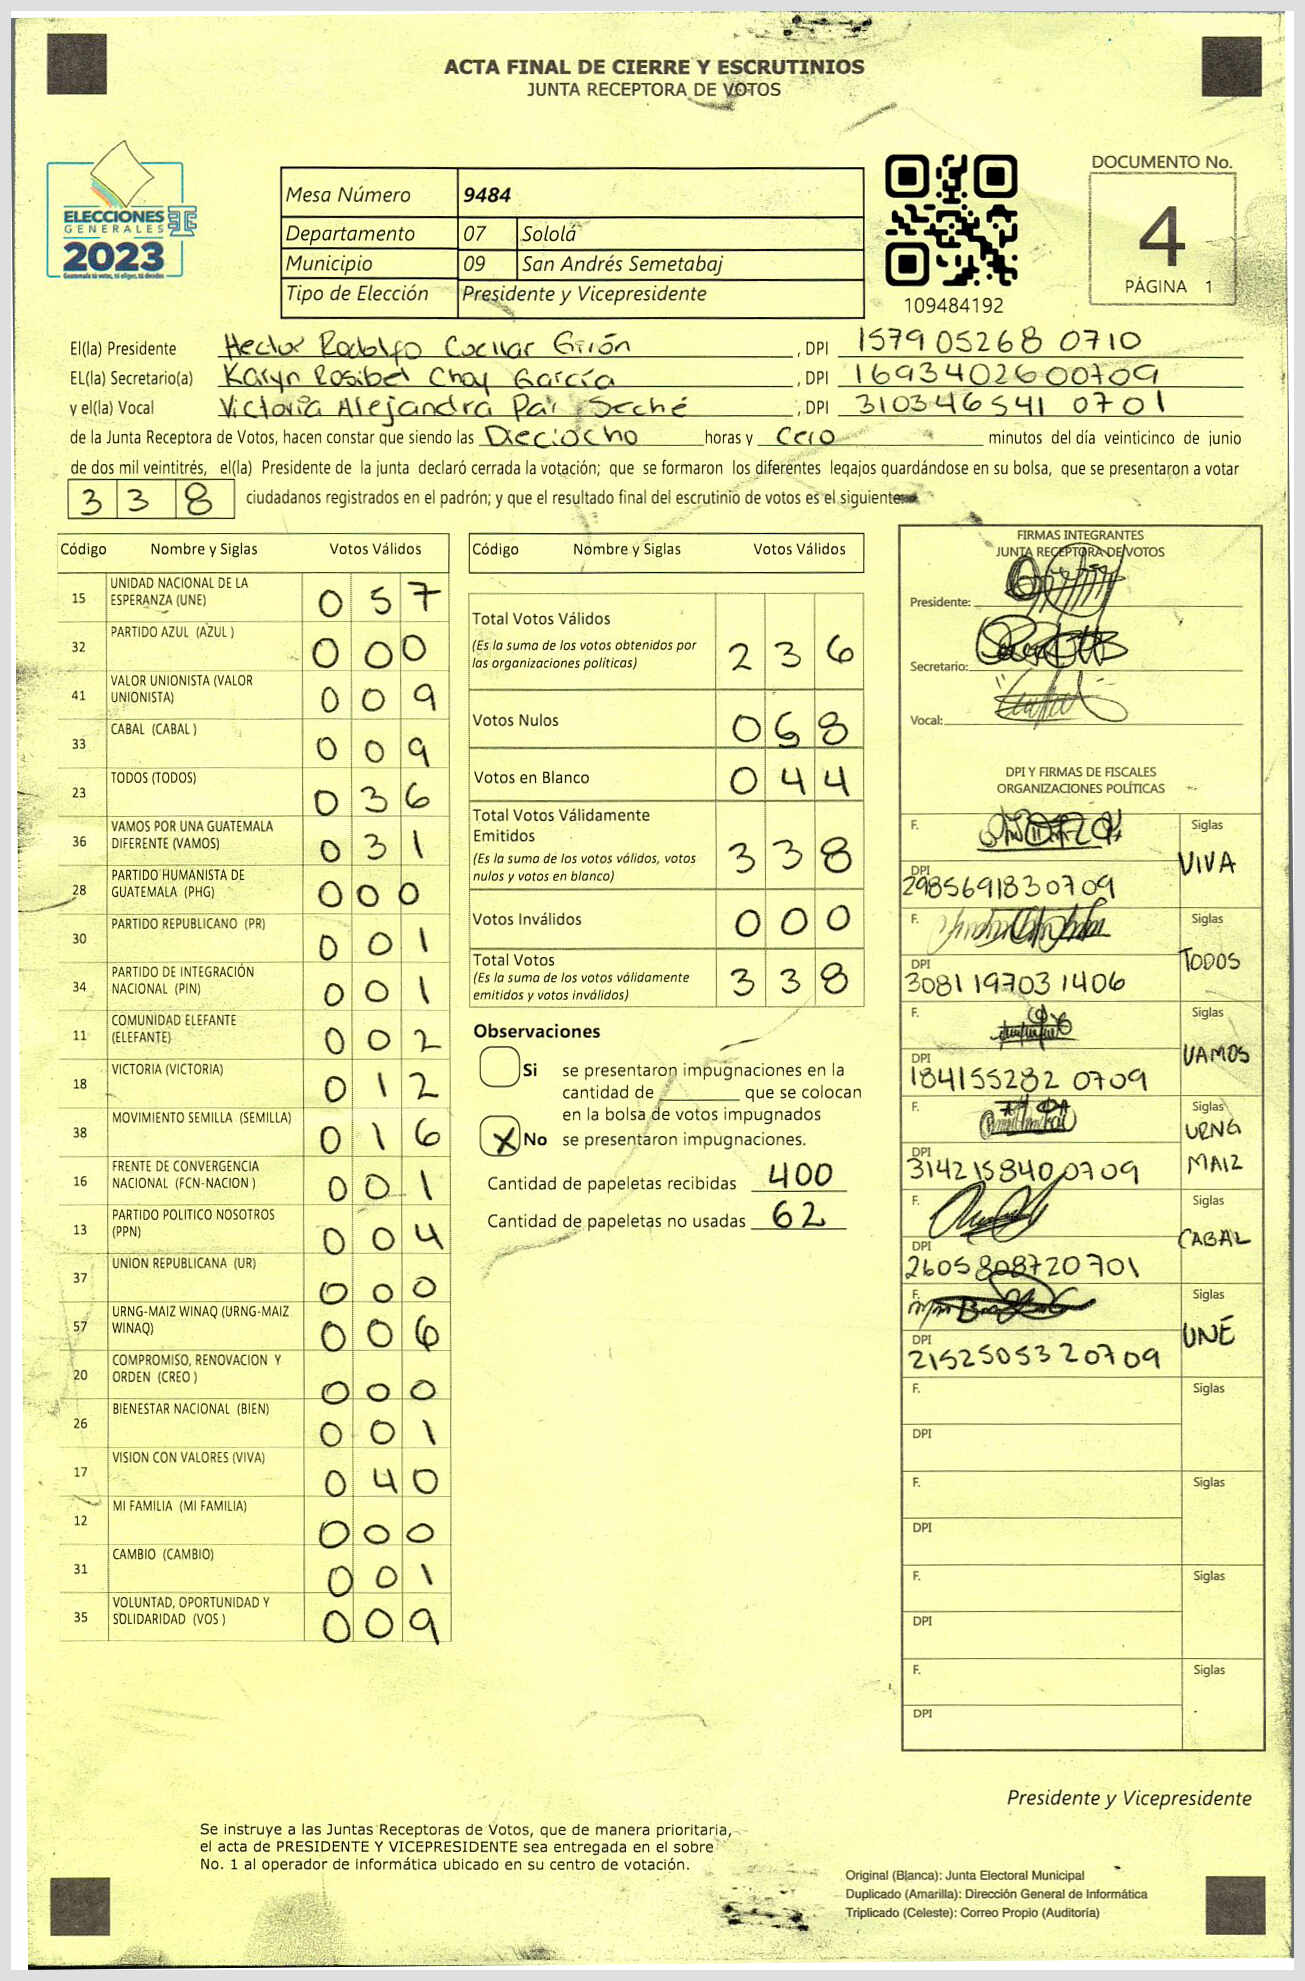 ACTA FINAL DE CIERRE Y ESCRUTINIOS
JUNTA RECEPTORA DE VOTOS
ELECCIONES
GENERALES
2023
Mesa Número 9484
Departamento 07 Sololá
Municipio 09 San Andrés Semetabaj
Tipo de Elección Presidente y Vicepresidente
109484192
DOCUMENTO No.
4
PÁGINA 1
El(la) Presidente Hector Rodolfo Cuellar Girón, DPI 1579 05268 0710
EL(la) Secretario(a) Karyn Rosibel Choy García, DPI 1693402600709
y el(la) Vocal Victoria Alejandra Par Seché, DPI 310346541 0701
de la Junta Receptora de Votos, hacen constar que siendo las Dieciocho horas y Cero minutos del día veinticinco de junio
de dos mil veintitrés, el(la) Presidente de la junta declaró cerrada la votación; que se formaron los diferentes legajos guardándose en su bolsa, que se presentaron a votar
338 ciudadanos registrados en el padrón; y que el resultado final del escrutinio de votos es el siguiente
Código Nombre y Siglas Votos Válidos
15 UNIDAD NACIONAL DE LA ESPERANZA (UNE) 057
32 PARTIDO AZUL (AZUL ) 000
41 VALOR UNIONISTA (VALOR UNIONISTA) 009
33 CABAL (CABAL ) 009
23 TODOS (TODOS) 036
36 VAMOS POR UNA GUATEMALA DIFERENTE (VAMOS) 031
28 PARTIDO HUMANISTA DE GUATEMALA (PHG) 000
30 PARTIDO REPUBLICANO (PR) 001
34 PARTIDO DE INTEGRACIÓN NACIONAL (PIN) 001
11 COMUNIDAD ELEFANTE (ELEFANTE) 002
18 VICTORIA (VICTORIA) 012
38 MOVIMIENTO SEMILLA (SEMILLA) 016
16 FRENTE DE CONVERGENCIA NACIONAL (FCN-NACION ) 001
13 PARTIDO POLITICO NOSOTROS (PPN) 004
37 UNION REPUBLICANA (UR) 000
57 URNG-MAIZ WINAQ (URNG-MAIZ WINAQ) 006
20 COMPROMISO, RENOVACION Y ORDEN (CREO ) 000
26 BIENESTAR NACIONAL (BIEN) 001
17 VISION CON VALORES (VIVA) 040
12 MI FAMILIA (MI FAMILIA) 000
31 CAMBIO (CAMBIO) 001
35 VOLUNTAD, OPORTUNIDAD Y SOLIDARIDAD (VOS ) 009
Código Nombre y Siglas Votos Válidos
Total Votos Válidos 236
(Es la suma de los votos obtenidos por
las organizaciones políticas)
Votos Nulos 068
Votos en Blanco 044
Total Votos Válidamente
Emitidos 338
(Es la suma de los votos válidos, votos
nulos y votos en blanco)
Votos Inválidos 000
Total Votos 338
(Es la suma de los votos válidamente
emitidos y votos inválidos)
Observaciones
Si se presentaron impugnaciones en la
cantidad de ________ que se colocan
en la bolsa de votos impugnados
X No se presentaron impugnaciones.
Cantidad de papeletas recibidas 400
Cantidad de papeletas no usadas 62
FIRMAS INTEGRANTES
JUNTA RECEPTORA DE VOTOS
Presidente:
Secretario:
Vocal:
DPI Y FIRMAS DE FISCALES
ORGANIZACIONES POLÍTICAS
F. Siglas
VIVA
DPI
2985691830709
F. Siglas
TODOS
DPI
3081197031406
F. Siglas
VAMOS
DPI
184155282 0709
F. Siglas
URNG
MAIZ
DPI
3142158400709
F. Siglas
CABAL
DPI
2605808720701
F. Siglas
UNE
DPI
2152505320709
F. Siglas
DPI
F. Siglas
DPI
F. Siglas
DPI
F. Siglas
DPI
Presidente y Vicepresidente
Se instruye a las Juntas Receptoras de Votos, que de manera prioritaria,
el acta de PRESIDENTE Y VICEPRESIDENTE sea entregada en el sobre
No. 1 al operador de informática ubicado en su centro de votación.
Original (Blanca): Junta Electoral Municipal
Duplicado (Amarilla): Dirección General de Informática
Triplicado (Celeste): Correo Propio (Auditoría)